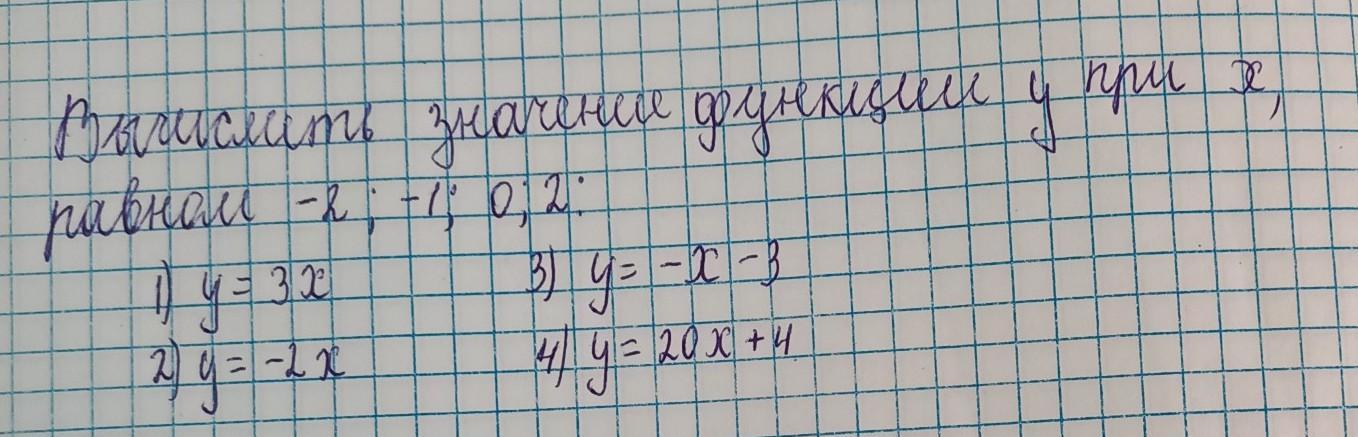 Вычислить значение функции y при x,
равном -2; -1; 0; 2:
1) y = 3x 3) y = -x - 3
2) y = -2x 4) y = 20x + 4